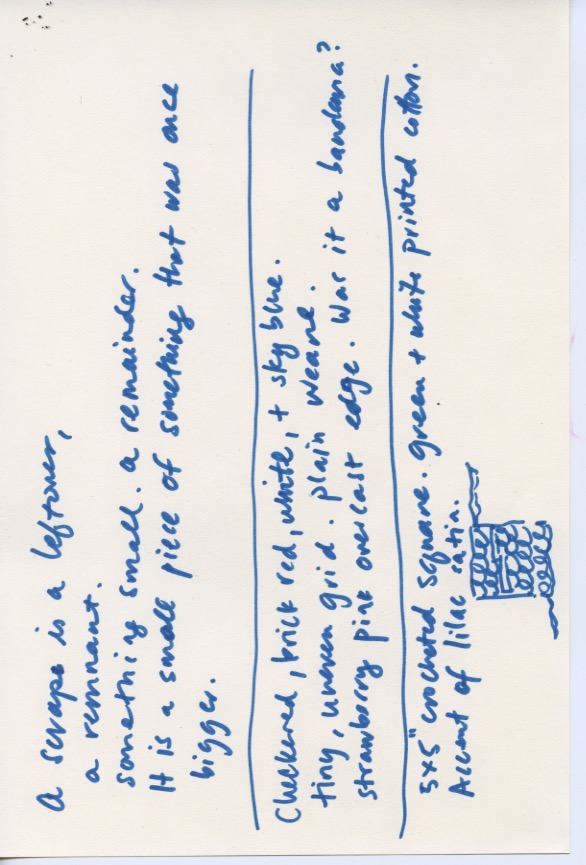 A scrape is a leftover,
a remnant.
something small. a remainder.
It is a small piece of something that was once
bigger.
Checkered, brick red, white, + sky blue.
tiny, uneven grid. plain weave.
strawberry pink overcast edge. Was it a bandana?
5x5" crocheted square. green + white printed cotton.
Accent of lilac satin.